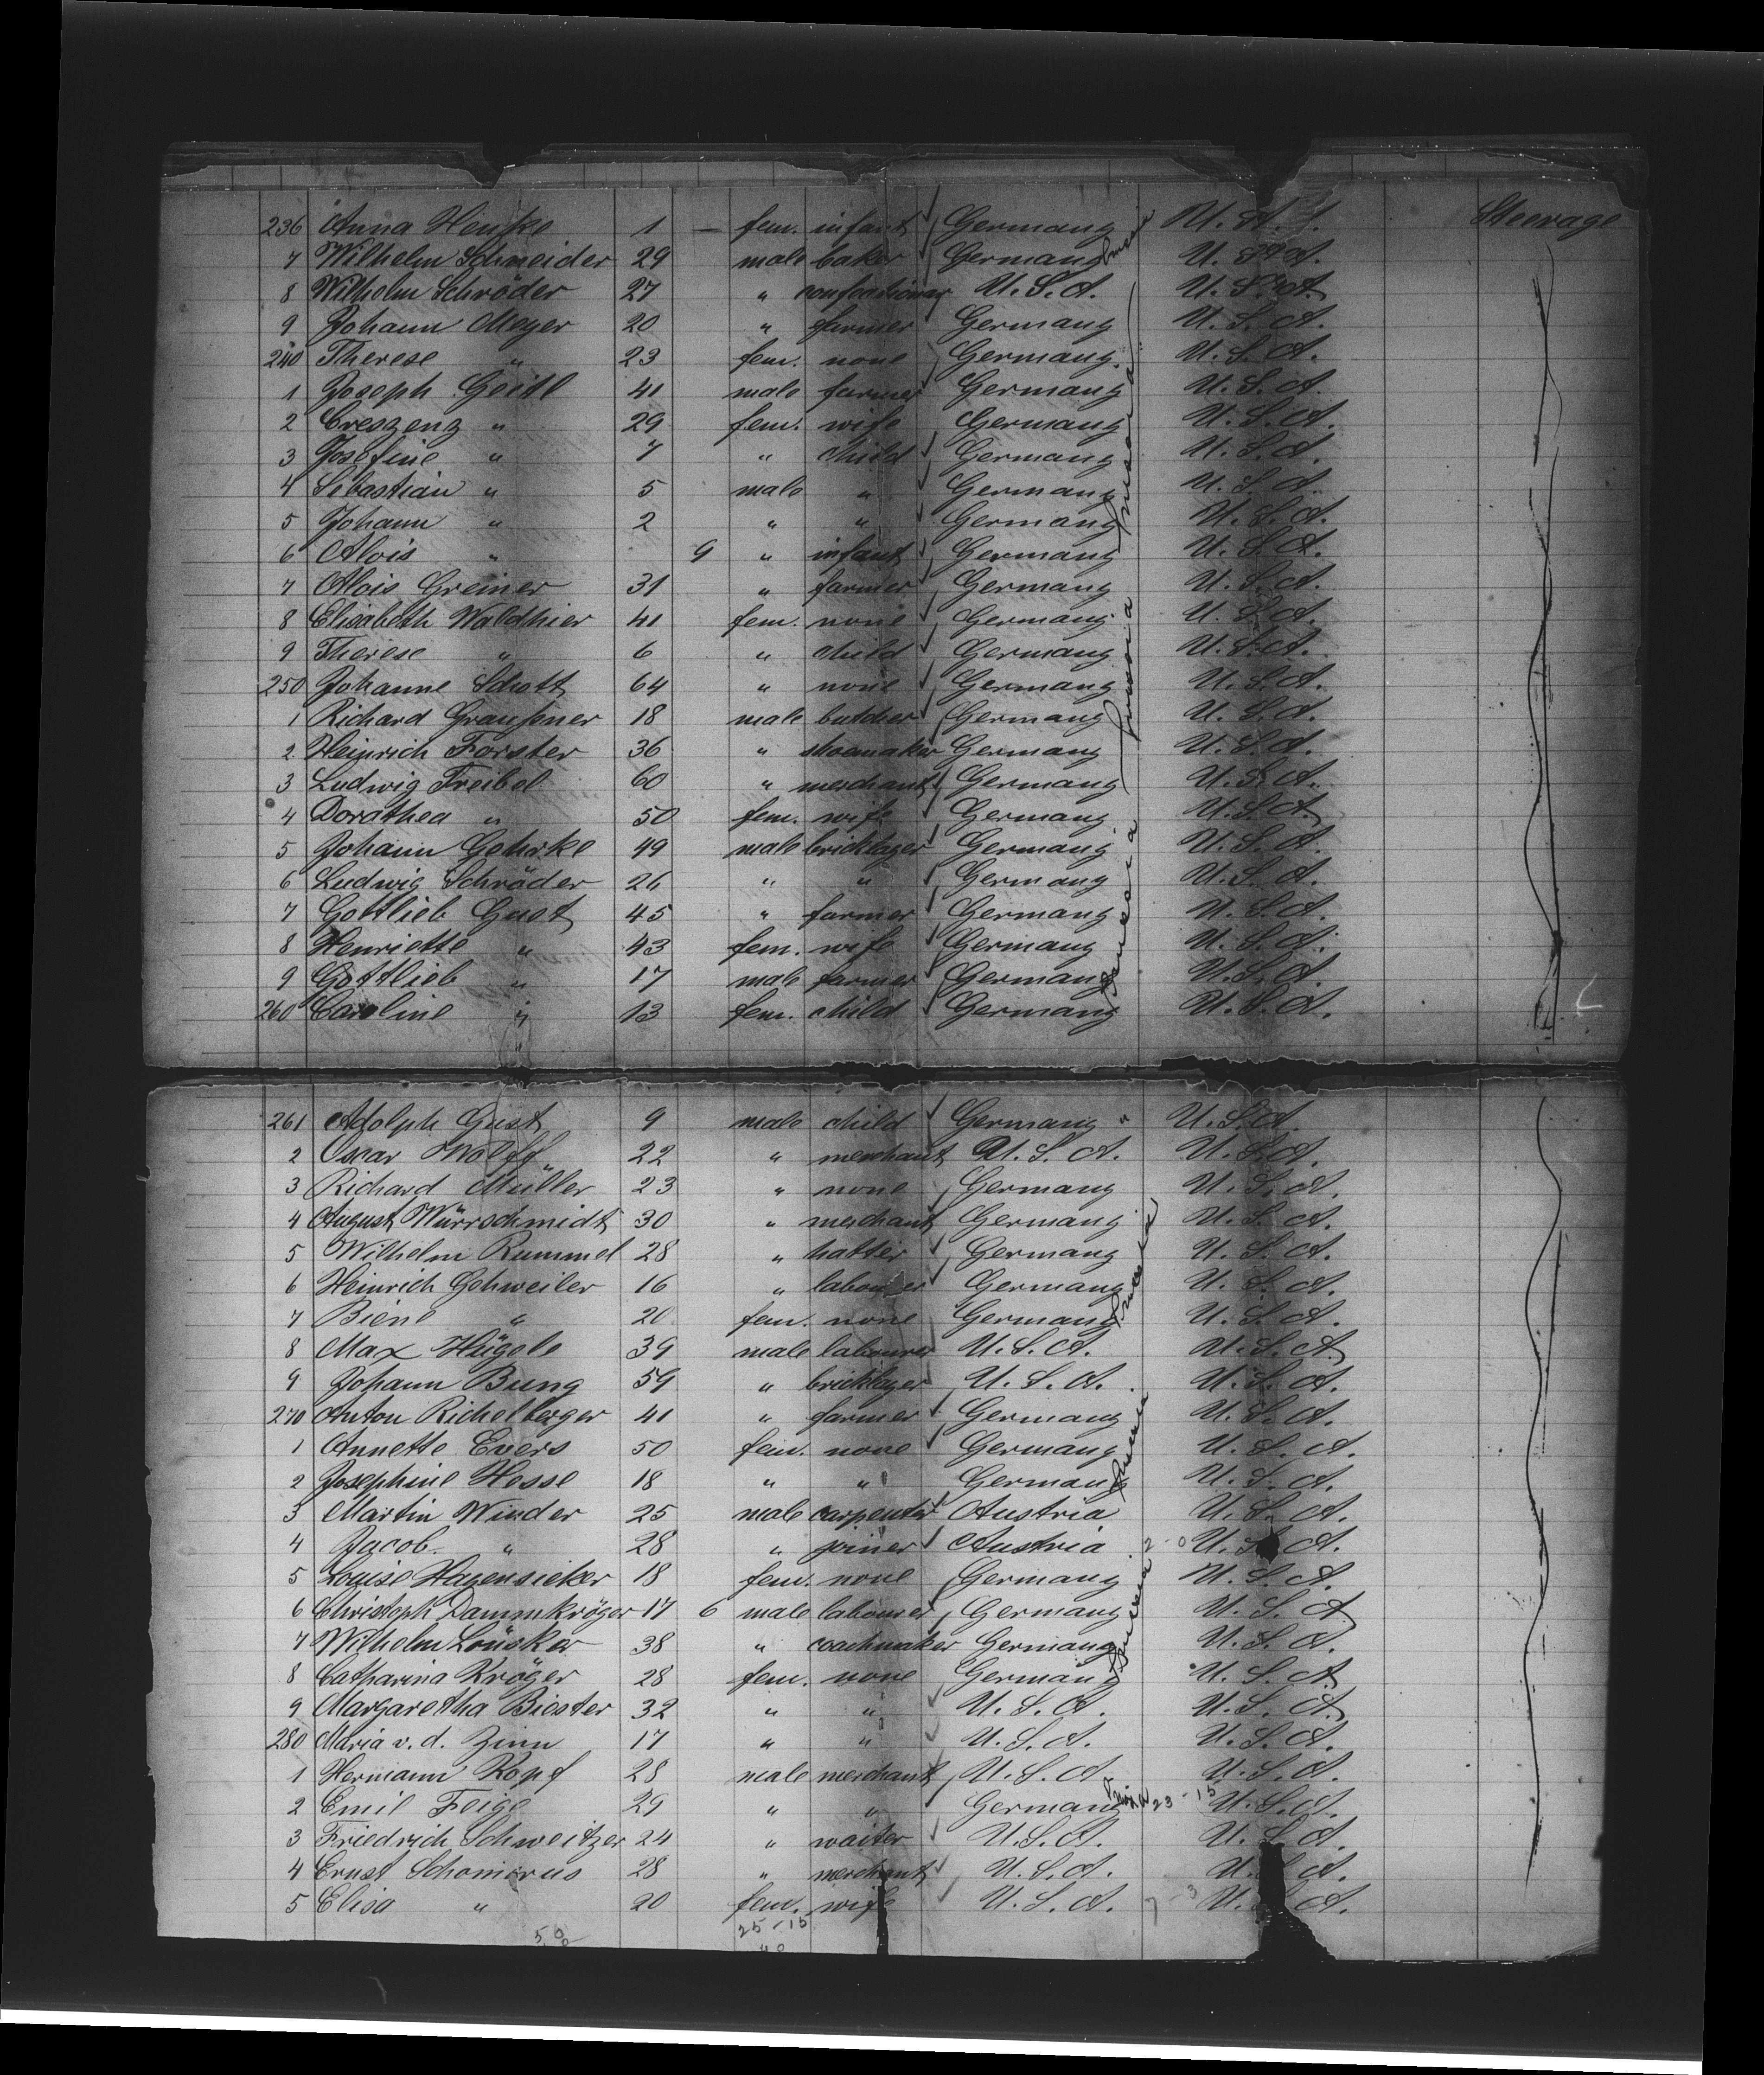 236 Anna Henske 1 — fem. infant Germany U.S.A. Steerage
7 Wilhelm Schneider 29 male baker Germany U.S.A.
8 Wilhelm Schröder 27 " confectioner U.S.A. U.S.A.
9 Johann Meyer 20 " farmer Germany U.S.A.
240 Therese " 23 fem. none Germany. U.S.A.
1 Joseph Geitl 41 male farmer Germany U.S.A.
2 Creszenz " 29 fem. wife Germany U.S.A.
3 Josefine " 7 " child Germany U.S.A.
4 Sebastian " 5 male " Germany U.S.A.
5 Johann " 2 " " Germany U.S.A.
6 Alois " 9 " infant Germany U.S.A.
7 Alois Greiner 31 " farmer Germany U.S.A.
8 Elisabeth Waldhier 41 fem. none Germany U.S.A.
9 Therese " 6 " child Germany U.S.A.
250 Johanne Schott 64 " none Germany U.S.A.
1 Richard Graupner 18 male butcher Germany U.S.A.
2 Heinrich Forster 36 " shoemaker Germany U.S.A.
3 Ludwig Freibel 60 " merchant Germany U.S.A.
4 Dorathea " 50 fem. wife Germany U.S.A.
5 Johann Gehrke 49 male bricklayer Germany U.S.A.
6 Ludwig Schröder 26 " " Germany U.S.A.
7 Gottlieb Gust 45 " farmer Germany U.S.A.
8 Henriette " 43 fem. wife Germany U.S.A.
9 Gottlieb " 17 male farmer Germany U.S.A.
260 Caroline " 13 fem. child Germany U.S.A.
261 Adolph Gust 9 male child Germany " U.S.A.
2 Oscar Wolff 22 " merchant U.S.A. U.S.A.
3 Richard Müller 23 " none Germany U.S.A.
4 August Würrschmidt 30 " merchant Germany U.S.A.
5 Wilhelm Rummel 28 " hatter Germany U.S.A.
6 Heinrich Gehweiler 16 " labourer Germany U.S.A.
7 Biene " 20 fem. none Germany U.S.A.
8 Max Hügele 39 male labourer U.S.A. U.S.A.
9 Johann Bung 59 " bricklayer U.S.A. U.S.A.
270 Anton Richelberger 41 " farmer Germany U.S.A.
1 Annette Evers 50 fem. none Germany U.S.A.
2 Josephine Hesse 18 " " Germany U.S.A.
3 Martin Winder 25 male carpenter Austria U.S.A.
4 Jacob " 28 " joiner Austria 2-0 U.S.A.
5 Louise Hagensieker 18 fem. none Germany U.S.A.
6 Christoph Dammkröger 17 6 male labourer Germany U.S.A.
7 Wilhelm Lönsker 38 " coachmaker Germany U.S.A.
8 Catharina Kröger 28 fem. none Germany U.S.A.
9 Margaretha Biester 32 " " U.S.A. U.S.A.
280 Maria v. d. Zinn 17 " " U.S.A. U.S.A.
1 Hermann Kopf 28 male merchant U.S.A. U.S.A.
2 Emil Feige 29 " " Germany 23-15 U.S.A.
3 Friedrich Schweitzer 24 " waiter U.S.A. U.S.A.
4 Ernst Schomerus 28 " merchant U.S.A. U.S.A.
5 Elisa " 20 fem. wife U.S.A. 7-3 U.S.A.
25-15